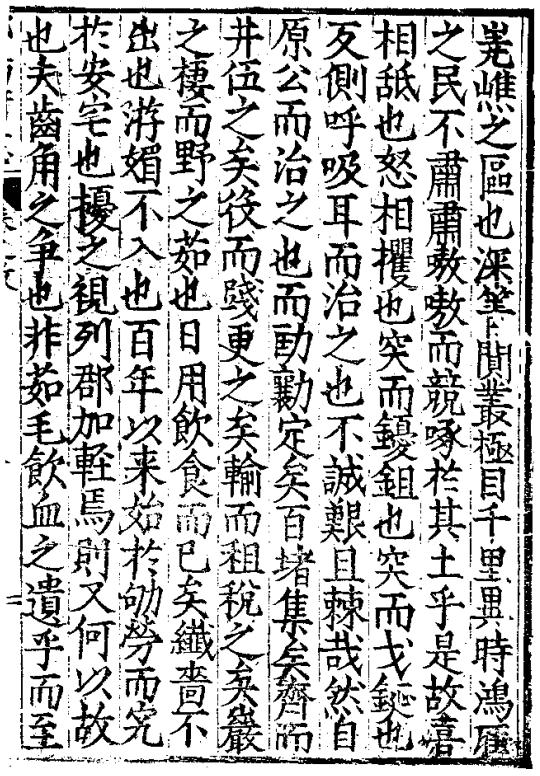 嶤嶕之區也深箐閴叢極目千里異時鴻雁
之民不肅肅嗷嗷而競啄於其土乎是故喜
相舐也怒相攫也突而鍰鉏也突而戈鋋也
反側呼吸耳而治之也不誠艱且棘哉然自
原公而治之也而動勷定矣百堵集矣齊而
井伍之矣役而踐更之矣輸而租稅之矣巖
之棲而野之茹也日用飲食而已矣纖嗇不
出也游媚不入也百年以来始於劬勞而究
於安宅也擾之視列郡加輊焉則又何以故
也夫齒角之争也非茹毛飲血之遺乎而至